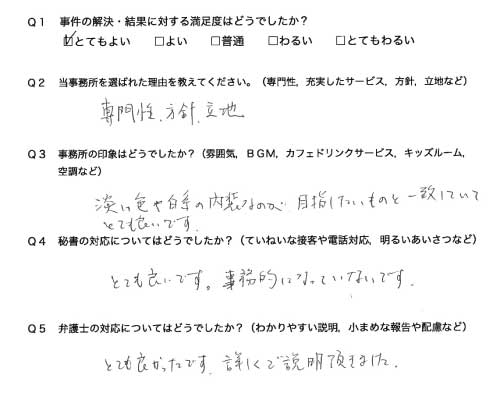 Q1 事件の解決・結果に対する満足度はどうでしたか？
☑とてもよい □よい □普通 □わるい □とてもわるい
Q2 当事務所を選ばれた理由を教えてください。（専門性，充実したサービス，方針，立地など）
専門性、方針、立地
Q3 事務所の印象はどうでしたか？（雰囲気，ＢＧＭ，カフェドリンクサービス，キッズルーム，
空調など）
淡い色や白系の内装なのが 目指したいものと一致していて
とても良いです.
Q4 秘書の対応についてはどうでしたか？（ていねいな接客や電話対応，明るいあいさつなど）
とても良いです。事務的になっていないです.
Q5 弁護士の対応についてはどうでしたか？（わかりやすい説明，小まめな報告や配慮など）
とても良かったです. 詳しくご説明頂きました.